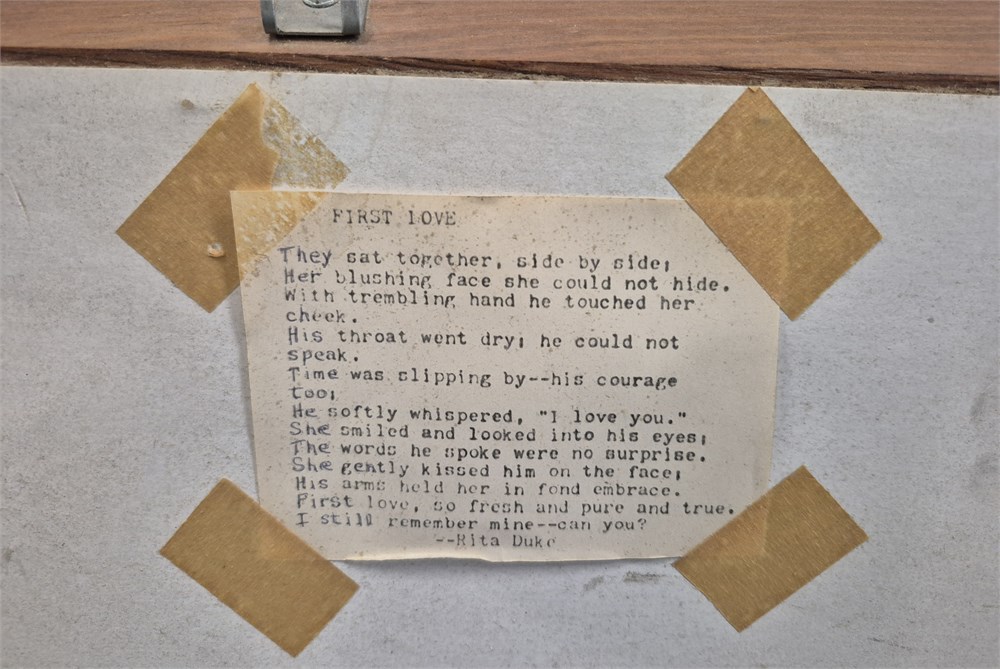 FIRST LOVE
They sat together, side by side;
Her blushing face she could not hide.
With trembling hand he touched her
cheek.
His throat went dry; he could not
speak.
Time was slipping by--his courage
too;
He softly whispered, "I love you."
She smiled and looked into his eyes;
The words he spoke were no surprise.
She gently kissed him on the face;
His arms held her in fond embrace.
First love, so fresh and pure and true.
I still remember mine--can you?
--Rita Duke